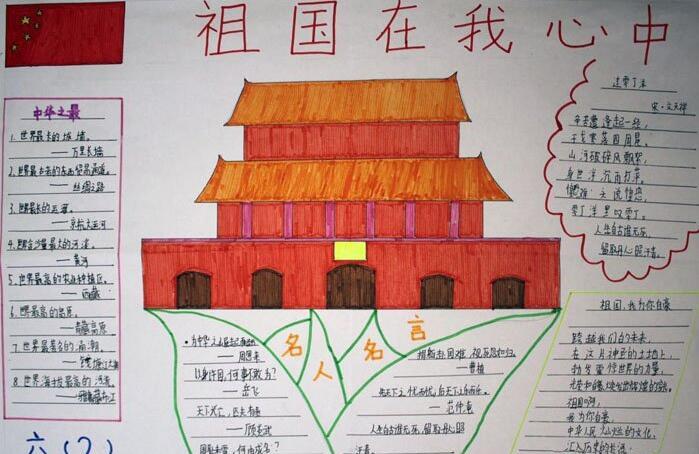 祖国在我心中
中华之最
1. 世界最长的城墙。
——万里长城
2. 世界最古老的东西贸易通道。
——丝绸之路
3. 世界最长的运河。
——京杭大运河
4. 世界含沙量最大的河流。
——黄河
5. 世界最高的农业种植区。
——西藏
6. 世界最高的高原。
——青藏高原
7. 世界最著名的涌潮。
——钱塘江大潮
8. 世界海拔最高的河流。
——雅鲁藏布江
六(2)
名人名言
——周恩来
以身许国,何事不敢为?
——岳飞
天下兴亡,匹夫有责
——顾炎武
捐躯赴国难,视死忽如归。
——曹植
先天下之忧而忧,后天下之乐而乐。
——范仲淹
人生自古谁无死,留取丹心照
汗青。
过零丁洋
宋·文天祥
辛苦遭逢起一经,
干戈寥落四周星。
山河破碎风飘絮,
身世浮沉雨打萍。
惶恐滩头说惶恐,
零丁洋里叹零丁。
人生自古谁无死,
留取丹心照汗青。
祖国,我为你自豪
跨越我们的未来,
在这片神圣的土地上,
勃发震惊世界的力量,
祖国啊,
我为你自豪,
中华人民灿烂的文化,
汇入历史的长河;